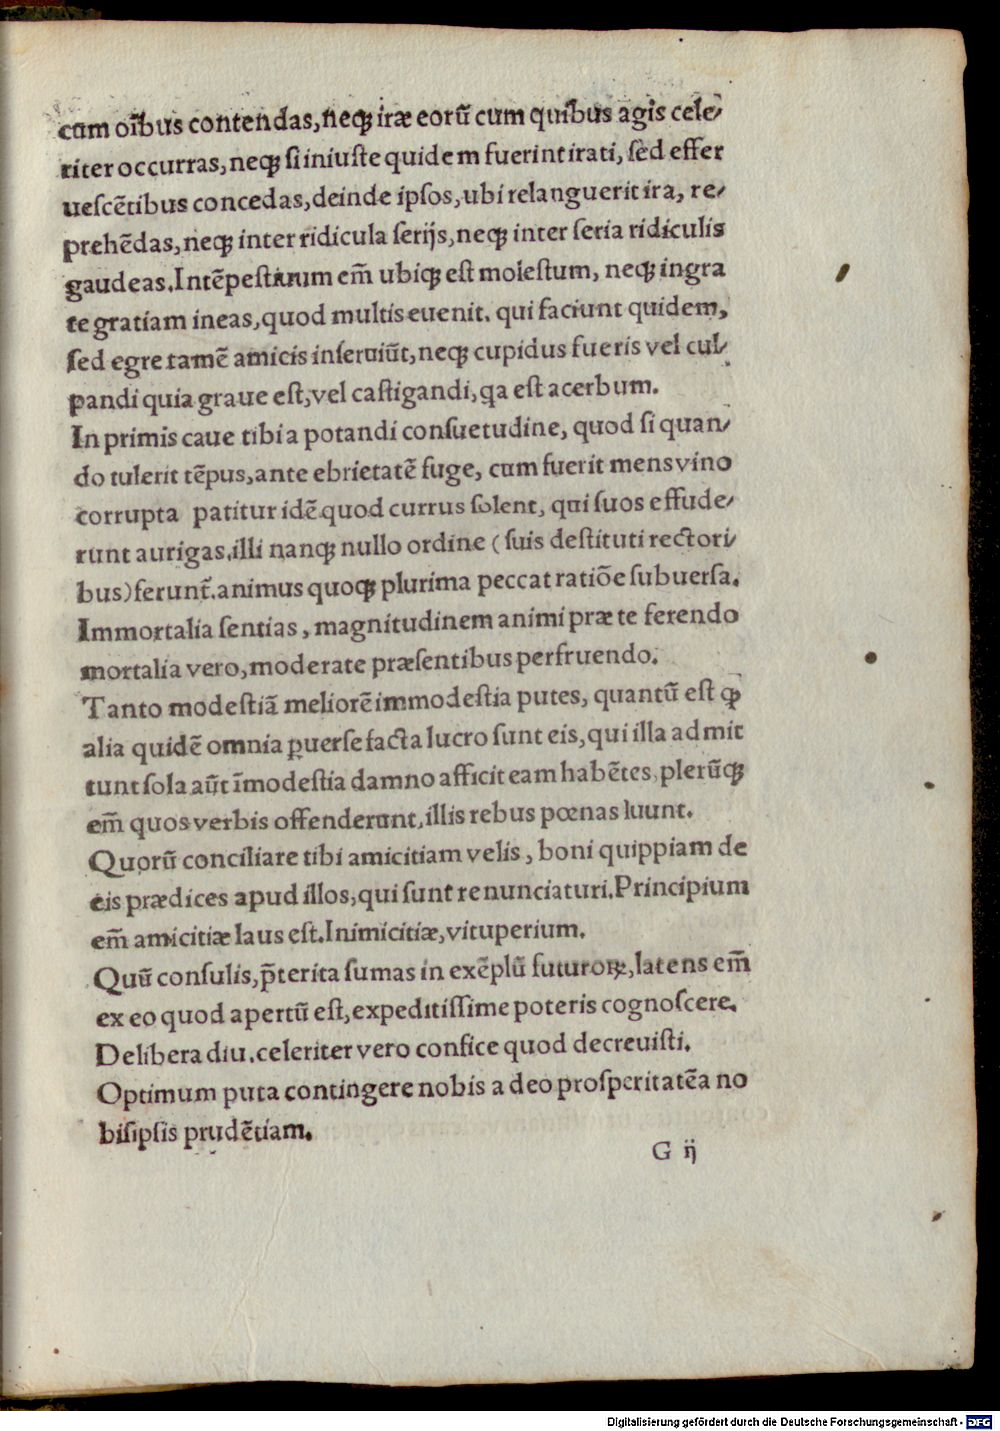 cum oībus contendas, neqꝫ iræ eorū cum quibus agis cele-
riter occurras, neqꝫ si iniuste quidem fuerint irati, sed effer
uescētibus concedas, deinde ipsos, ubi relanguerit ira, re-
prehēdas, neqꝫ inter ridicula serijs, neqꝫ inter seria ridiculis
gaudeas. Intēpestiuum em̄ ubiqꝫ est molestum, neqꝫ ingra
te gratiam ineas, quod multis euenit. qui faciunt quidem,
sed egre tamē amicis inseruiūt, neqꝫ cupidus fueris vel cul-
pandi quia graue est, vel castigandi, qa est acerbum.
In primis caue tibi a potandi consuetudine, quod si quan-
do tulerit tēpus, ante ebrietatē fuge, cum fuerit mens vino
corrupta patitur idē quod currus solent, qui suos effude-
runt aurigas. illi nanqꝫ nullo ordine (suis destituti rectori-
bus) ferunt̄. animus quoqꝫ plurima peccat ratiōe subuersa.
Immortalia sentias, magnitudinem animi præ te ferendo
mortalia vero, moderate præsentibus perfruendo.
Tanto modestiā meliorē immodestia putes, quantū est ꝙ
alia quidē omnia ꝑuerse facta lucro sunt eis, qui illa admit
tunt sola aūt īmodestia damno afficit eam habētes, plerūqꝫ
em̄ quos verbis offenderunt, illis rebus pœnas luunt.
Quorū conciliare tibi amicitiam velis, boni quippiam de
eis prædices apud illos, qui sunt renunciaturi. Principium
em̄ amicitiæ laus est. Inimicitiæ, vituperium.
Quū consulis, p̄terita sumas in exēplū futuroꝝ, latens em̄
ex eo quod apertū est, expeditissime poteris cognoscere.
Delibera diu. celeriter vero confice quod decreuisti.
Optimum puta contingere nobis a deo prosperitatē a no
bisipsis prudētiam.
G ij
Digitalisierung gefördert durch die Deutsche Forschungsgemeinschaft - DFG